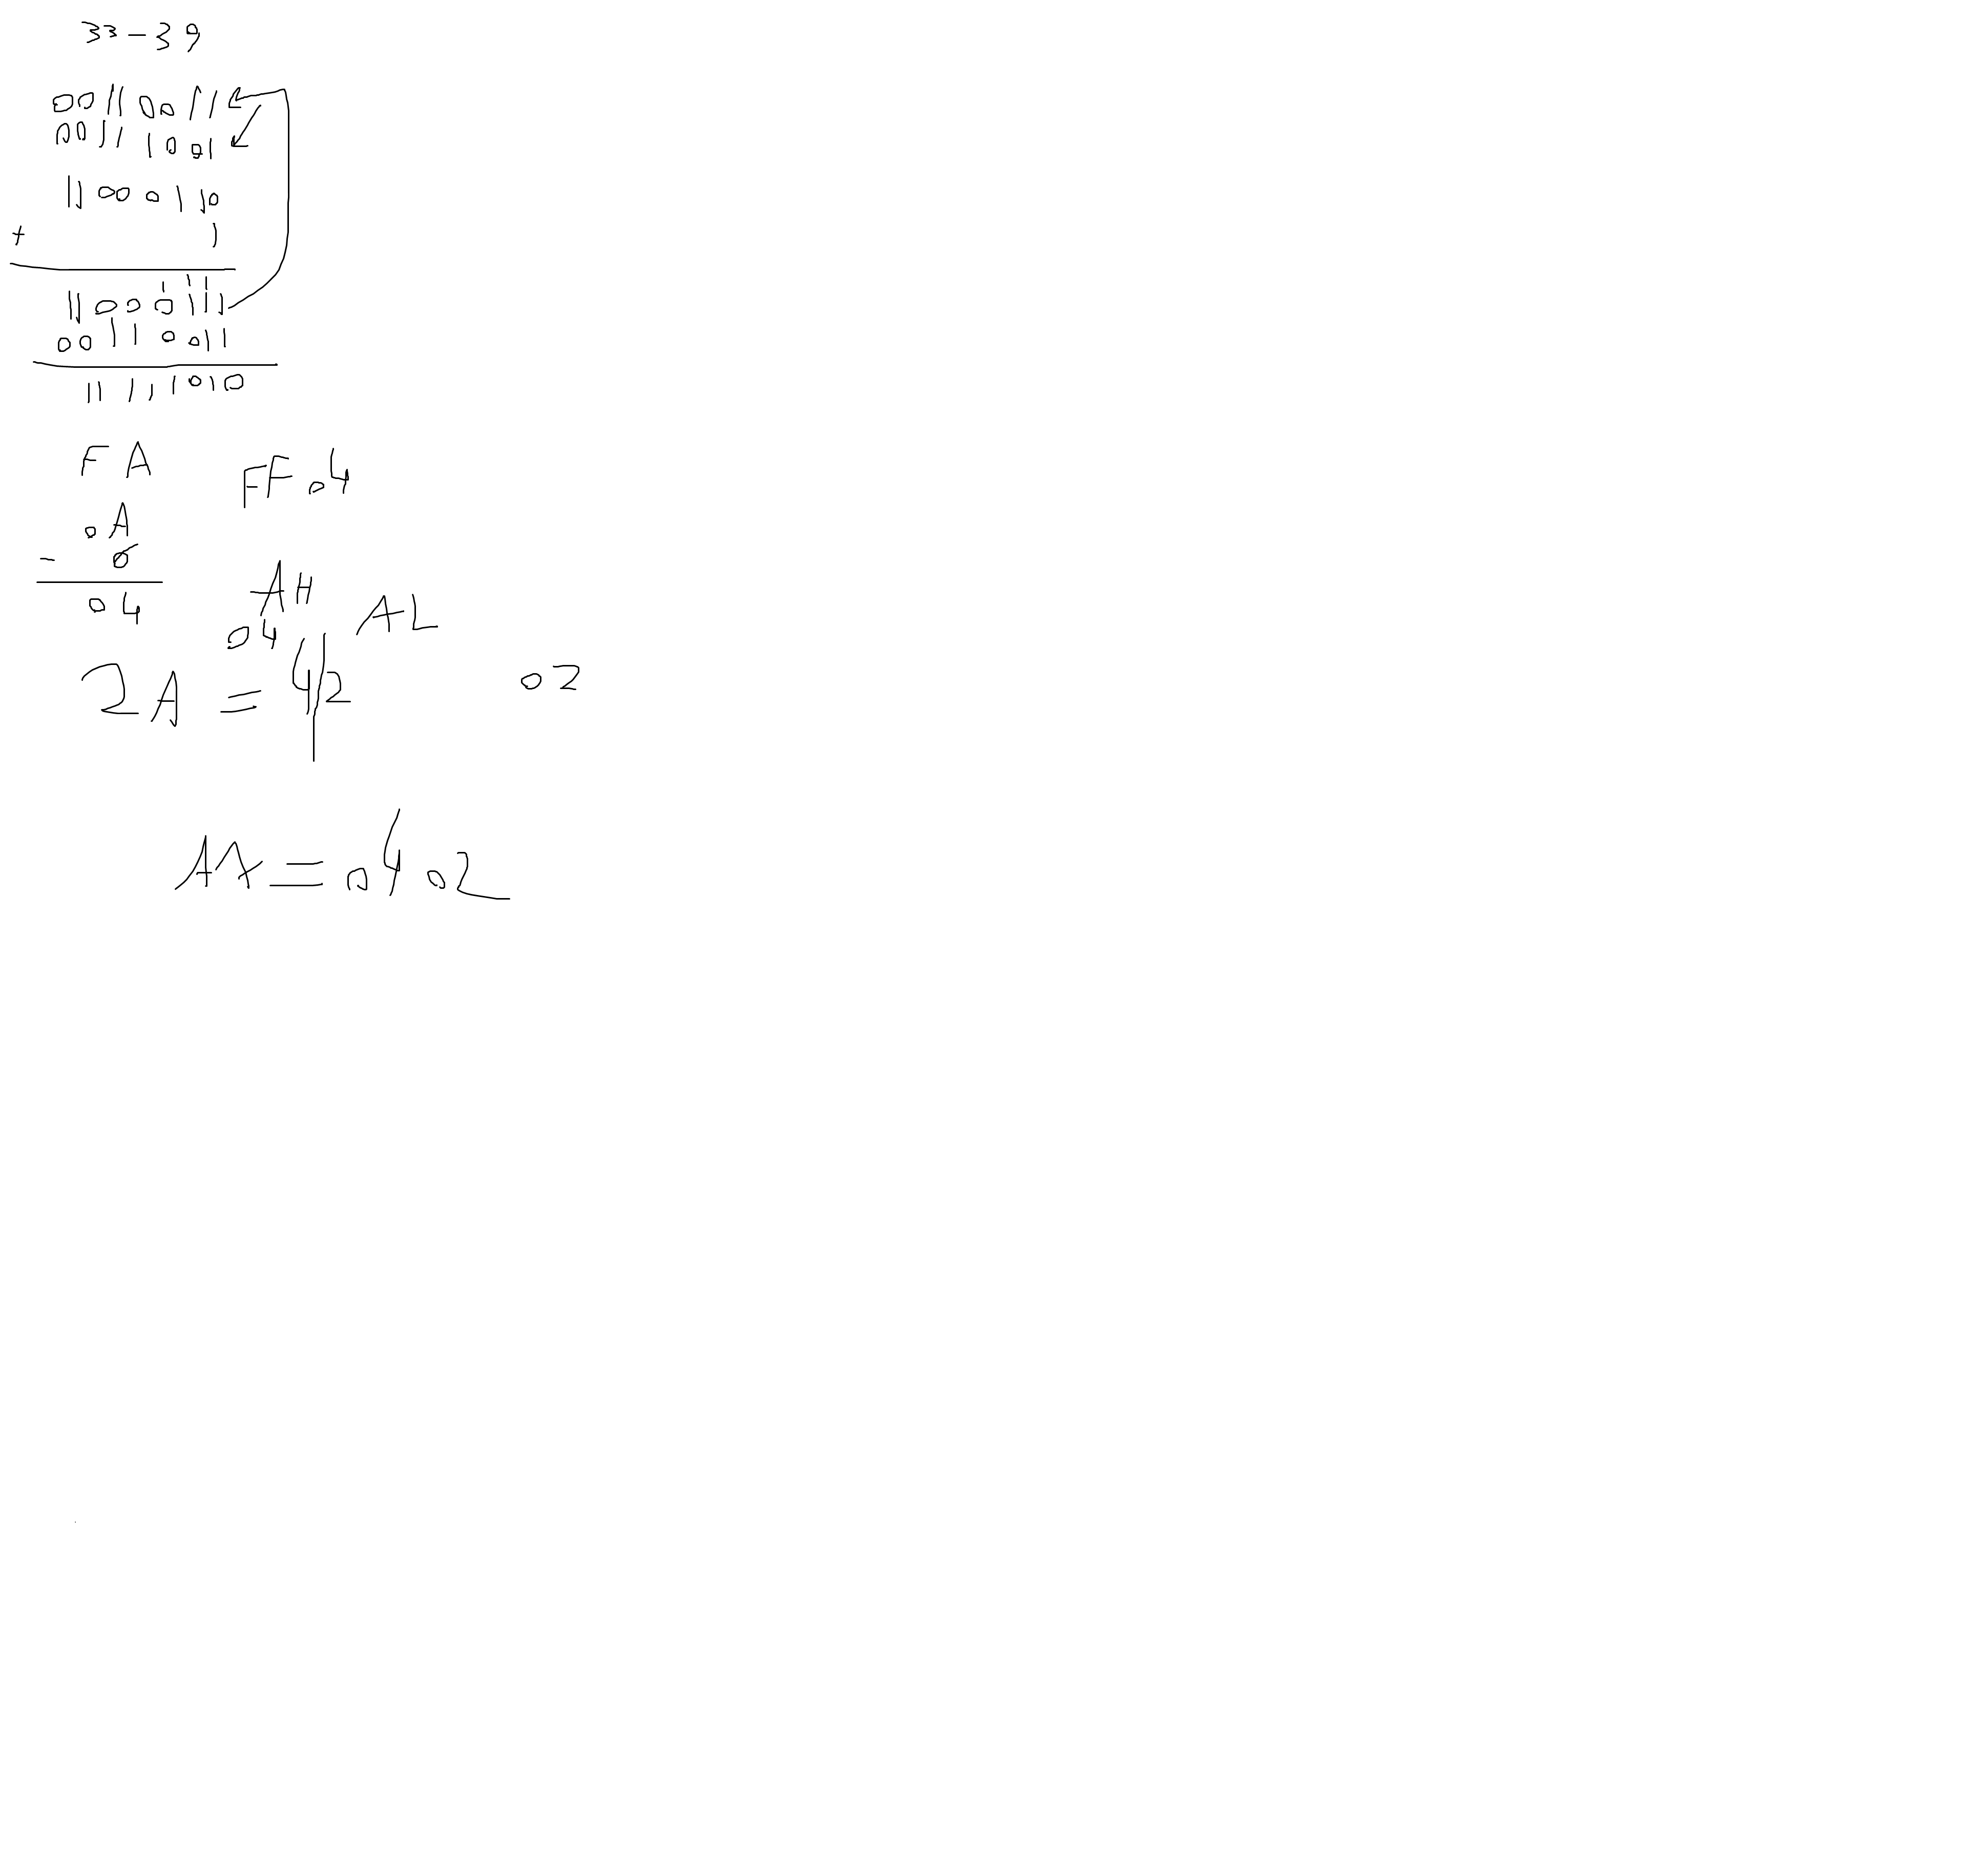 33-39
00110011
00111001
11000110
+ 1
111
11000111
00110011
11111010
FA
FF04
0A
- 6
04
AH
AL
04
2A = 4|2
02
AX = 0402